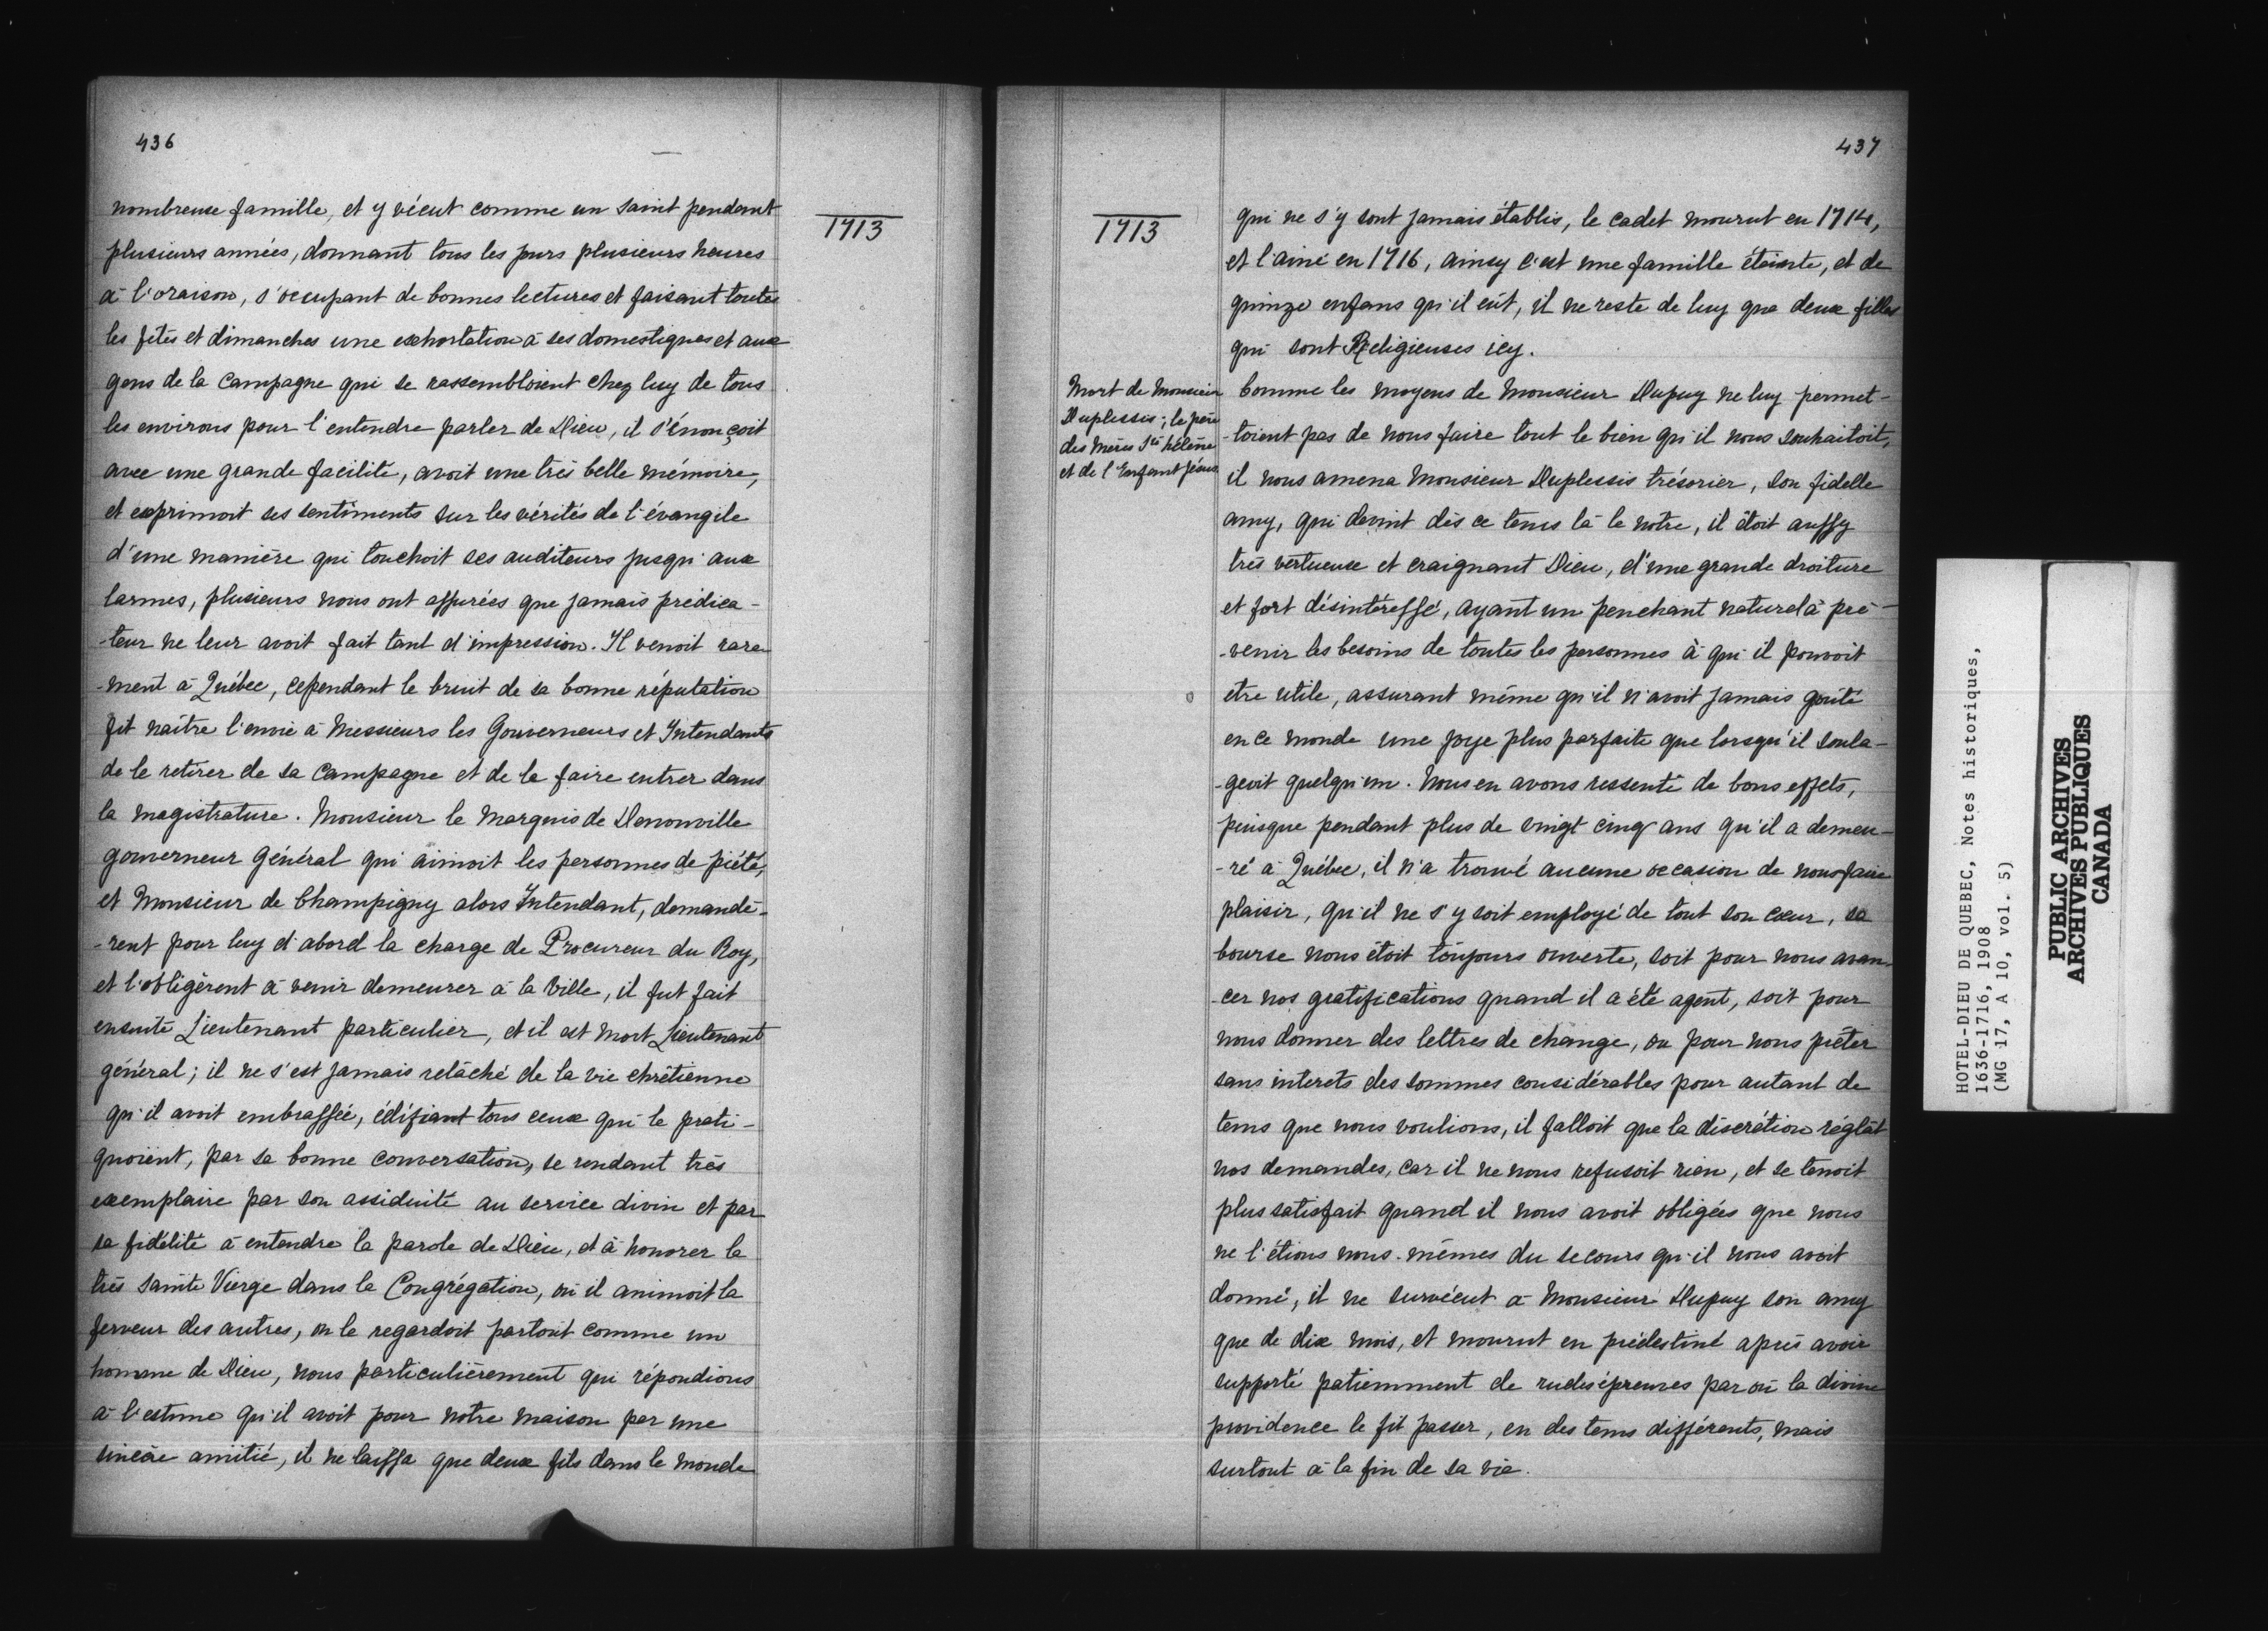 436
1713
nombreuse famille, et y vécut comme un saint pendant
plusieurs années, donnant tous les jours plusieurs heures
à l'oraison, s'occupant de bonnes lectures et faisant toutes
les fêtes et dimanches une exhortation à ses domestiques et aux
gens de la campagne qui se rassembloient chez luy de tous
les environs pour l'entendre parler de Dieu, il s'énonçoit
avec une grande facilité, avoit une très belle mémoire,
et exprimoit ses sentiments sur les vérités de l'évangile
d'une manière qui touchoit ses auditeurs jusqu'aux
larmes, plusieurs nous ont assurées que jamais prédica-
-teur ne leur avoit fait tant d'impression. Il venoit rare-
-ment à Québec, cependant le bruit de sa bonne réputation
fit naître l'envie à Messieurs les Gouverneurs et Intendants
de le retirer de sa campagne et de le faire entrer dans
la magistrature. Monsieur le Marquis de Denonville
gouverneur Général qui aimoit les personnes de piété,
et Monsieur de Champigny alors Intendant, demandè-
-rent pour luy d'abord la charge de Procureur du Roy,
et l'obligèrent à venir demeurer à la Ville, il fut fait
ensuite Lieutenant particulier, et il est mort Lieutenant
général; il ne s'est jamais relâché de la vie chrétienne
qu'il avoit embrassée, édifiant tous ceux qui le prati-
quoient, par sa bonne conversation, se rendant très
exemplaire par son assiduité au service divin et par
sa fidélité à entendre la parole de Dieu, et à honorer la
très sainte Vierge dans la Congrégation, où il animoit la
ferveur des autres, on le regardoit partout comme un
homme de Dieu, nous particulièrement qui répondions
à l'estime qu'il avoit pour notre maison par une
sincère amitié, il ne laissa que deux fils dans le monde
437
1713
qui ne s'y sont jamais établis, le cadet mourut en 1714,
et l'ainé en 1716, ainsy c'est une famille éteinte, et de
quinze enfans qu'il eût, il ne reste de luy que deux filles
qui sont Religieuses icy.
Mort de Monsieur
Duplessis; le père
des Mères Ste hélène
et de l'Enfant Jésus
Comme les moyens de Monsieur Dupuy ne luy permet-
-toient pas de nous faire tout le bien qu'il nous souhaitoit,
il nous amena Monsieur Duplessis trésorier, son fidelle
amy, qui devint dès ce tems là le notre, il étoit aussy
très vertueux et craignant Dieu, d'une grande droiture
et fort désintéressé, ayant un penchant naturel à pré-
-venir les besoins de toutes les personnes à qui il pouvoit
etre utile, assurant même qu'il n'avoit jamais goûté
en ce monde une joye plus parfaite que lorsqu'il soula-
-geoit quelqu'un. Nous en avons ressenti de bons effets,
puisque pendant plus de vingt cinq ans qu'il a demeu-
-ré à Québec, il n'a trouvé aucune occasion de nous faire
plaisir, qu'il ne s'y soit employé de tout son cœur, sa
bourse nous étoit toujours ouverte, soit pour nous avan-
-cer nos gratifications quand il a été agent, soit pour
nous donner des lettres de change, ou pour nous prêter
sans interets des sommes considérables pour autant de
tems que nous voulions, il falloit que la discrétion réglât
nos demandes, car il ne nous refusoit rien, et se tenoit
plus satisfait quand il nous avoit obligées que nous
ne l'étions nous-mêmes du secours qu'il nous avoit
donné, il ne survécut à Monsieur Dupuy son amy
que de dix mois, et mourut en prédestiné après avoir
supporté patiemment de rudes épreuves par où la divine
providence le fit passer, en des tems différents, mais
surtout à la fin de sa vie.
HOTEL-DIEU DE QUEBEC, Notes historiques,
1636-1716, 1908
(MG 17, A 10, vol. 5)
PUBLIC ARCHIVES
ARCHIVES PUBLIQUES
CANADA